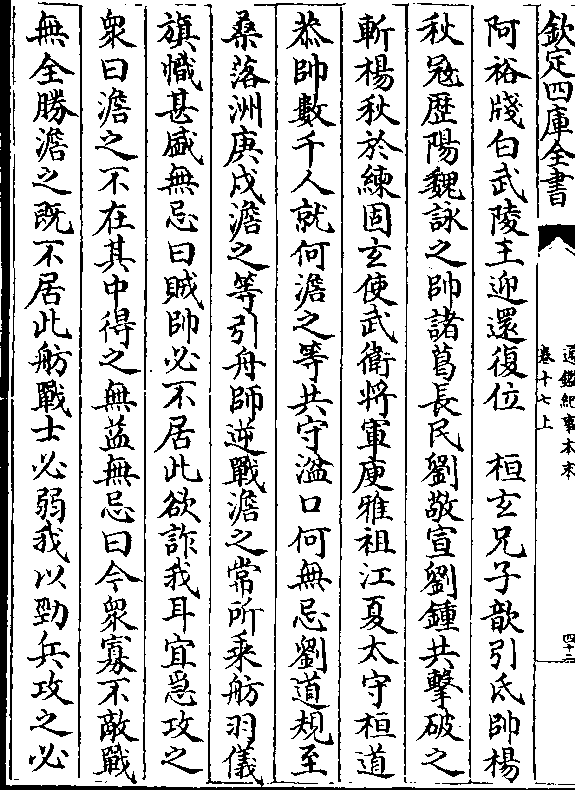 欽定四庫全書
通鑑紀事本末
卷十七上
四十二
阿裕牋白武陵王迎還復位　桓玄兄子歆引氐帥楊
秋寇歷陽魏詠之帥諸葛長民劉敬宣劉鍾共擊破之
斬楊秋於練固玄使武衛将軍庾雅祖江夏太守桓道
恭帥數千人就何澹之等共守湓口何無忌劉道規至
桑落洲庚戌澹之等引舟師逆戰澹之常所乘舫羽儀
旗幟甚盛無忌曰賊帥必不居此欲詐我耳宜急攻之
衆曰澹之不在其中得之無益無忌曰今衆寡不敵戰
無全勝澹之既不居此舫戰士必弱我以勁兵攻之必